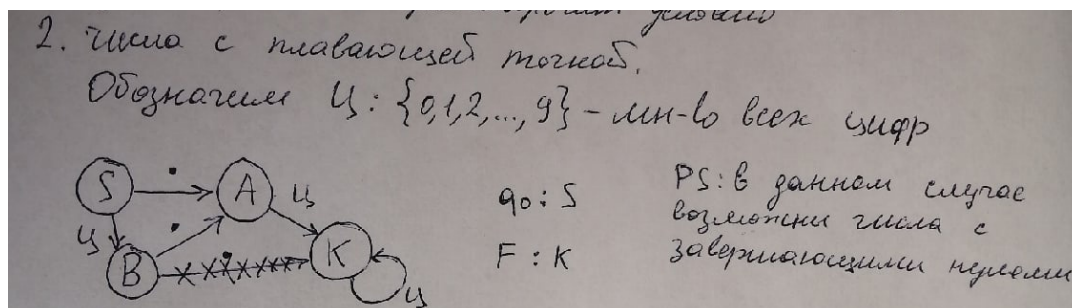 условию
2. Числа с плавающей точкой.
Обозначим Ц: {0,1,2,...,9} - мн-во всех цифр
S . A Ц
q0: S
PS: в данном случае
возможны числа с
завершающими нулями
Ц . B . K Ц
F: K